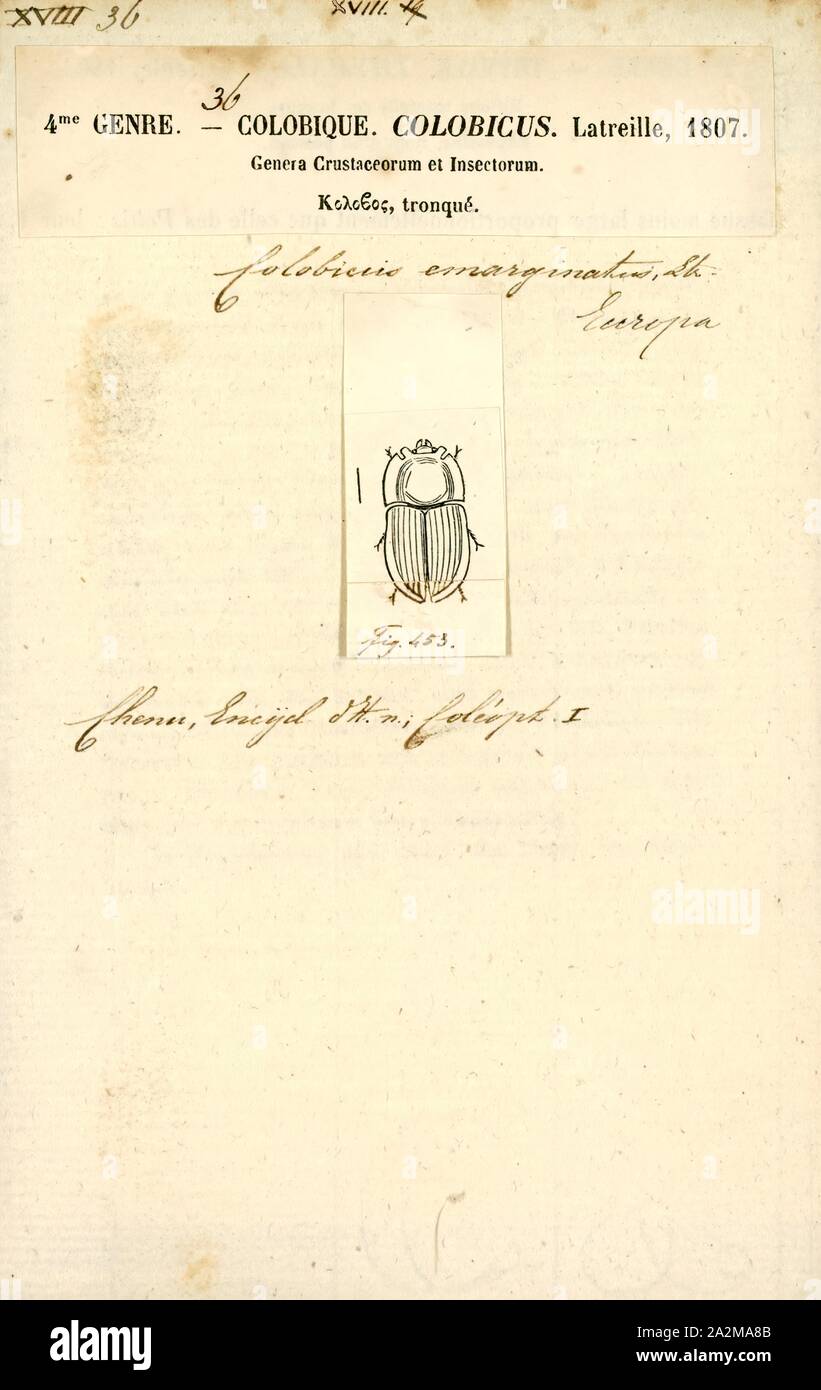 XVIII 36
XVIII. 19
36
4me GENRE. — COLOBIQUE. COLOBICUS. Latreille, 1807.
Genera Crustaceorum et Insectorum.
Κολοϐος, tronqué.
Colobicus emarginatus, Ltr.
Europa
Fig. 453.
Chenu, Encycl d'H. n.; Coléopt. I
alamy
Image ID: 2A2MA8B
www.alamy.com